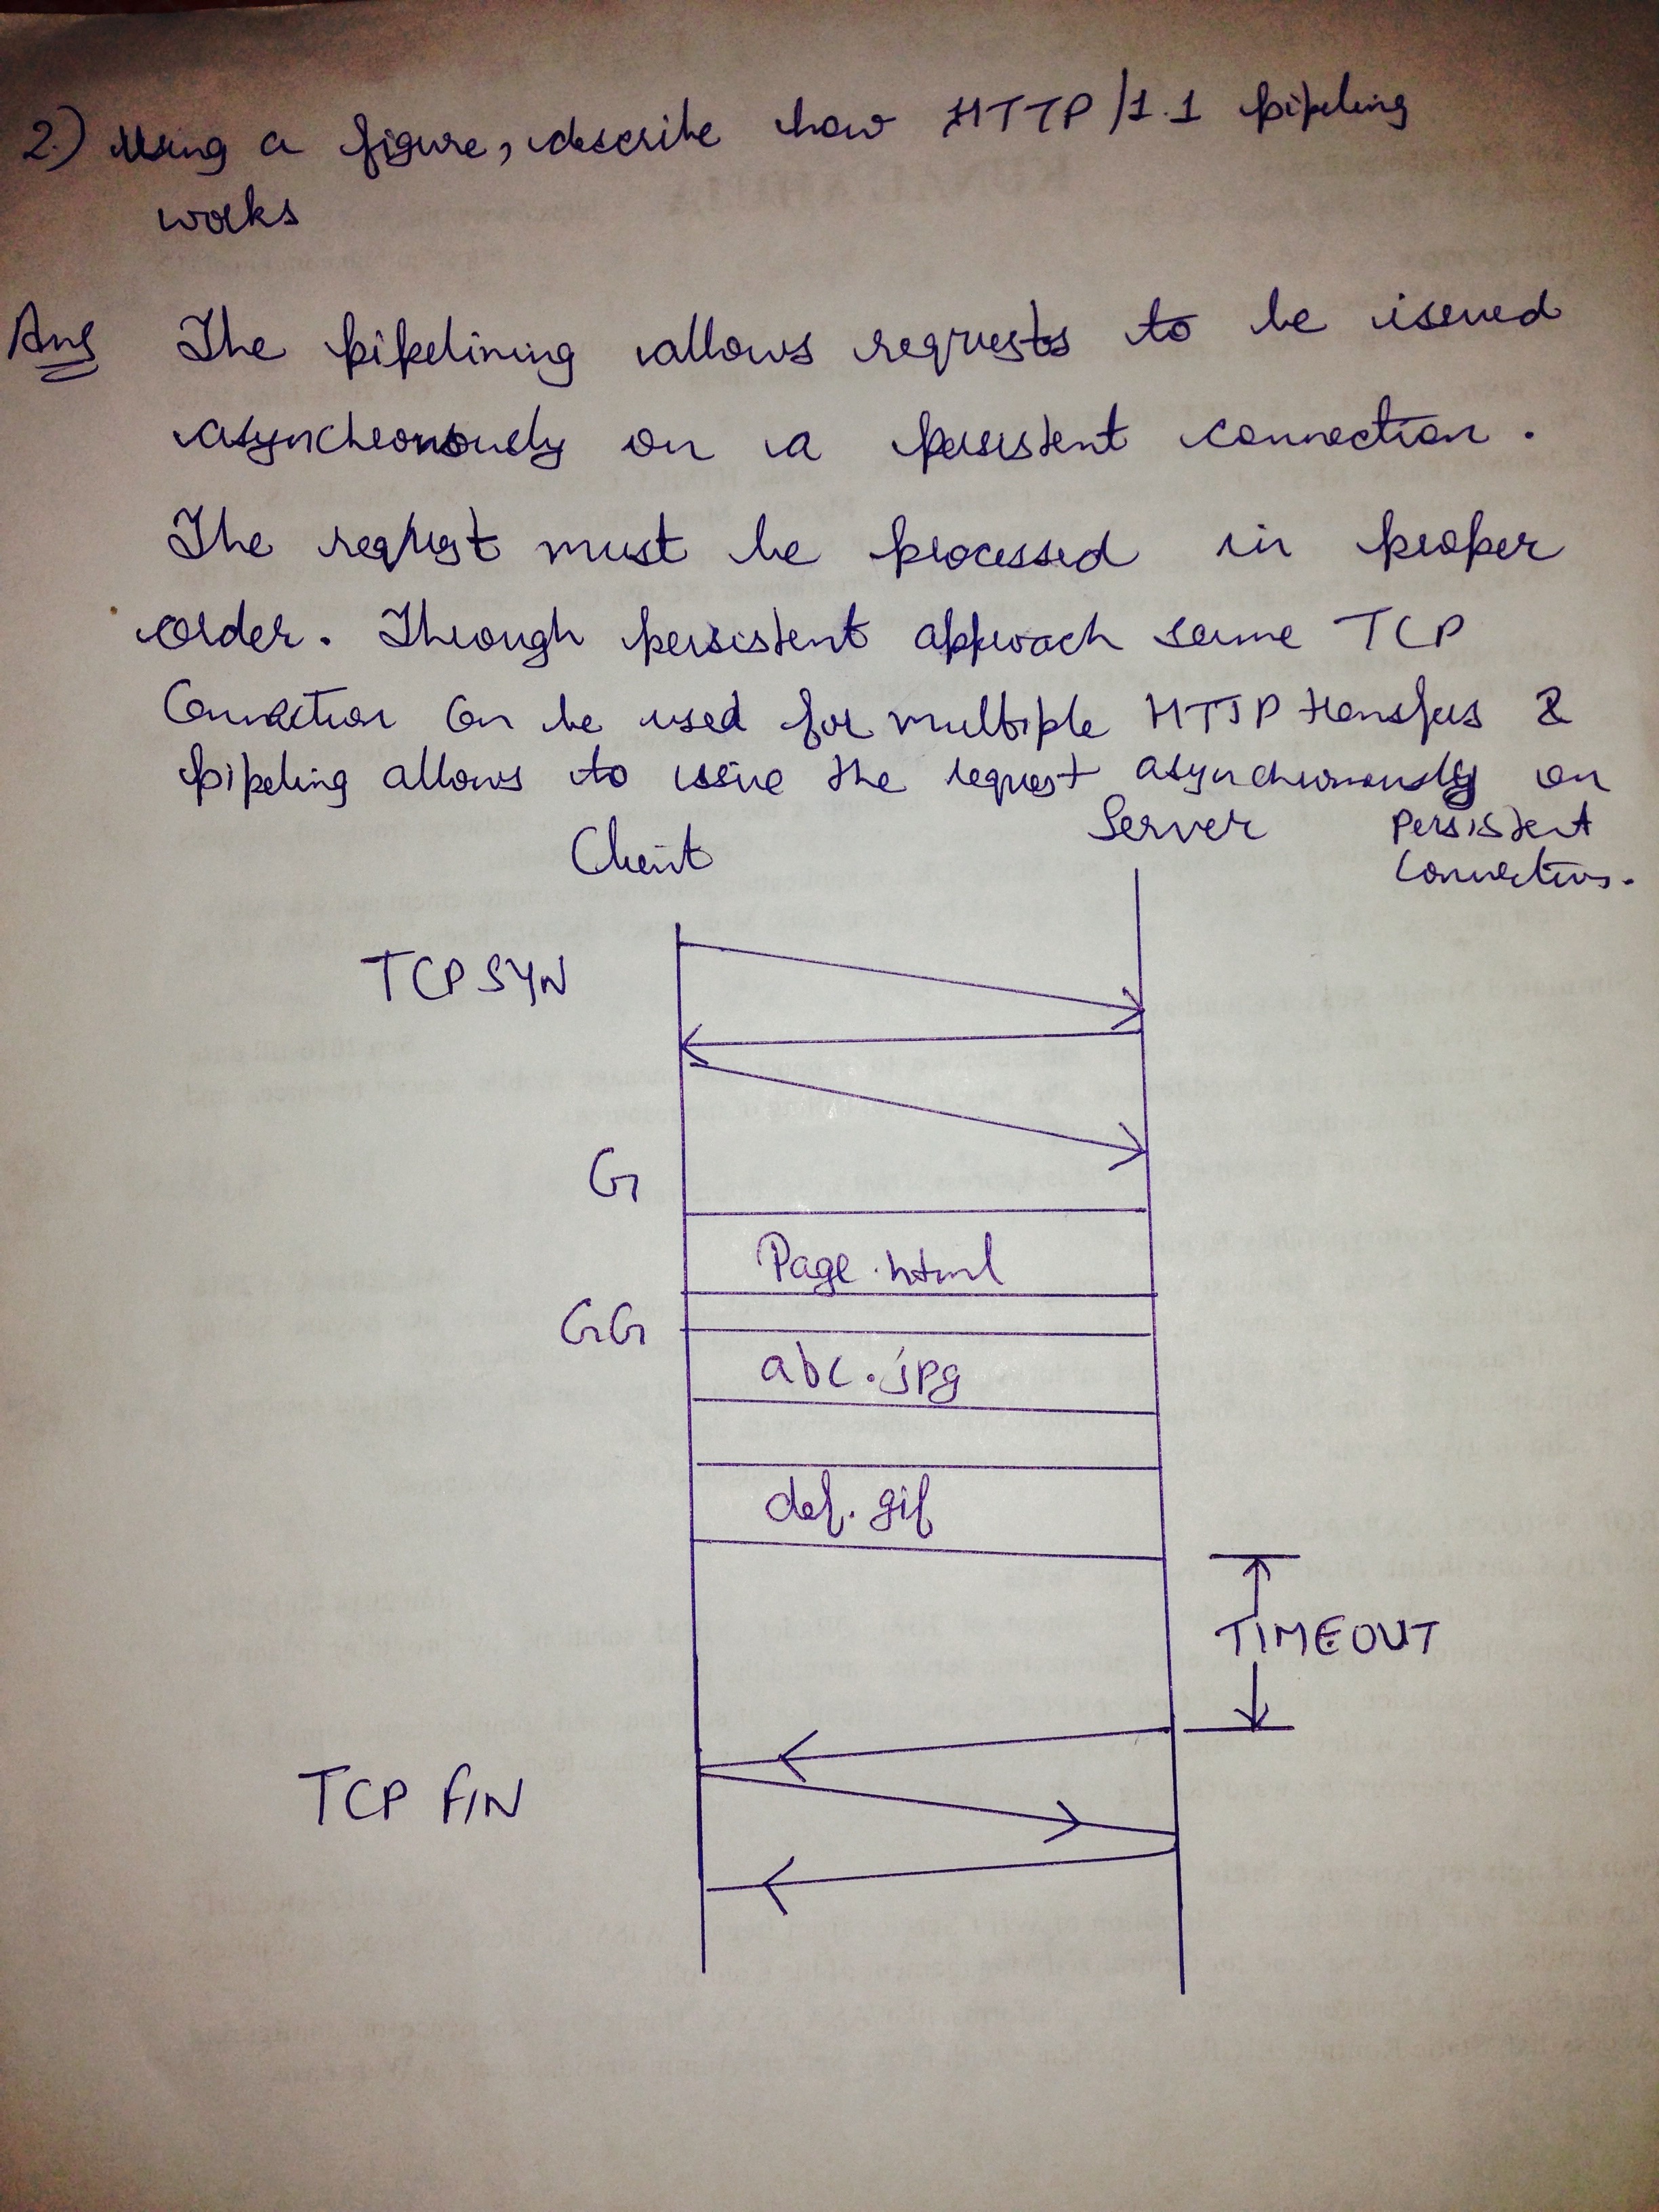 2.) Using a figure, describe how HTTP/1.1 pipeling
works
Ans The pipelining allows requests to be issued
asynchronously on a persistent connection.
The request must be processed in proper
order. Through persistent approach same TCP
Connection Can be used for multiple HTTP transfers &
pipeling allows to issue the request asynchronously on
Persistent
Connections.
Client Server
TCP SYN
G
Page.html
GG
abc.jpg
def.gif
TIMEOUT
TCP FIN